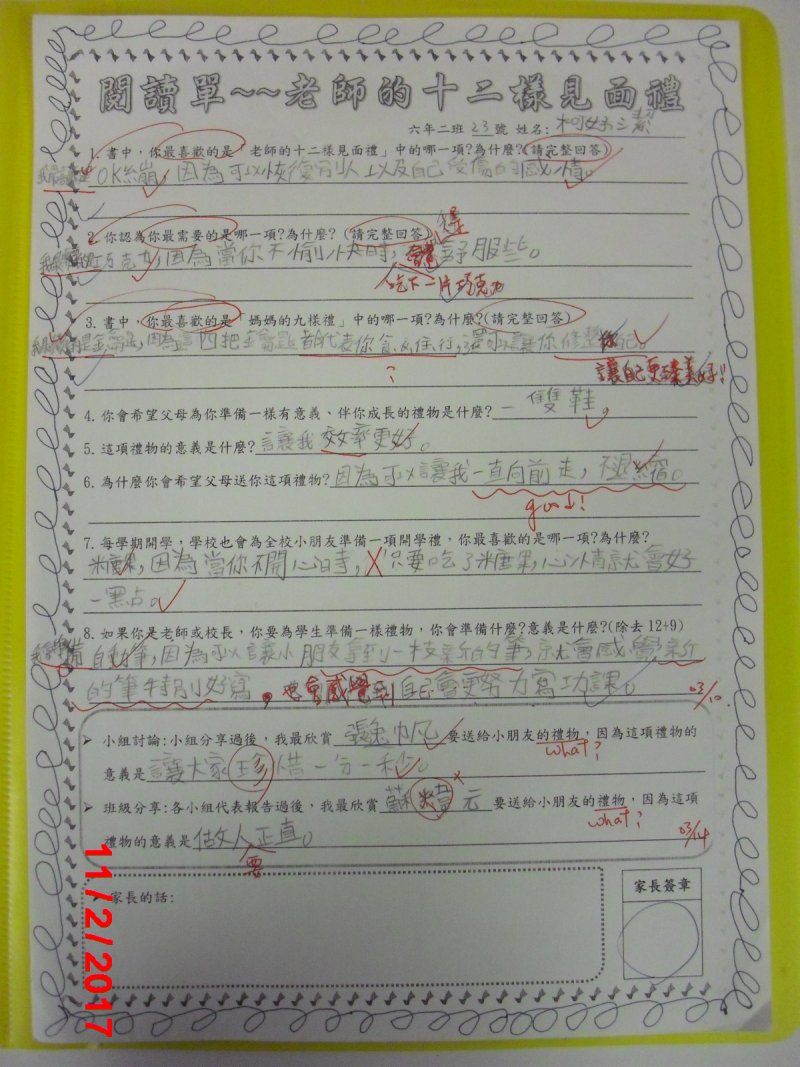 閱讀單~~老師的十二樣見面禮
六年二班23號 姓名:柯妤潔
1.書中,你最喜歡的是「老師的十二樣見面禮」中的哪一項?為什麼?(請完整回答)
OK繃,因為可以恢復別人以及自己受傷的感情。
2.你認為你最需要的是哪一項?為什麼?(請完整回答)
巧克力,因為當你不愉快時,會舒服些。
吃下一片巧克力
3.書中,你最喜歡的是「媽媽的九樣禮」中的哪一項?為什麼?(請完整回答)
金鑰匙,因為這四把金鑰匙都代表你食衣住行,還可以讓你修整自己。
?
讓自己更臻美好!
4.你會希望父母為你準備一樣有意義、伴你成長的禮物是什麼?一雙鞋。
5.這項禮物的意義是什麼?讓我效率更好。
6.為什麼你會希望父母送你這項禮物?因為可以讓我一直向前走,不退縮。
good!
7.每學期開學,學校也會為全校小朋友準備一項開學禮,你最喜歡的是哪一項?為什麼?
糖果,因為當你不開心的時,只要吃了糖果,心情就會好
一點點。
8.如果你是老師或校長,你要為學生準備一樣禮物,你會準備什麼?意義是什麼?(除去12+9)
自動筆,因為可以讓小朋友拿到一枝新的筆,就會感覺新
的筆特別好寫,也會感覺到自己會更努力寫功課。
03/10
➢ 小組討論:小組分享過後,我最欣賞 張兔帆 要送給小朋友的禮物,因為這項禮物的
what?
意義是讓大家珍惜一分一秒。
➢ 班級分享:各小組代表報告過後,我最欣賞 蘇煒元 要送給小朋友的禮物,因為這項
what?
禮物的意義是做人正直。
03/14
要
➢ 家長的話:
家長簽章
11/2/2017